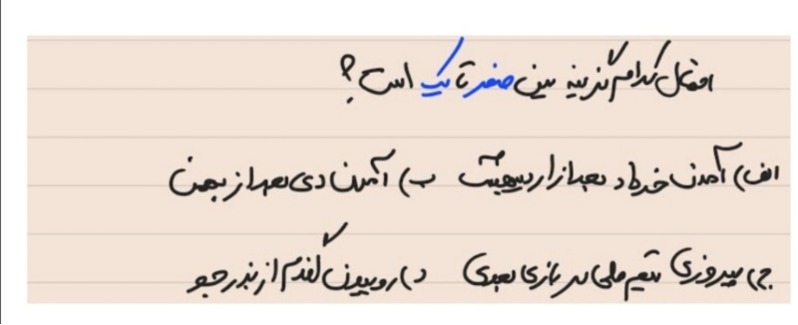 احتمال کدام گزینه بین صفر تا یک است؟
الف) آمدن خرداد بعد از اردیبهشت ب) آمدن دی بعد از بهمن
ج) پیروزی تیم ملی در بازی بعدی د) روییدن گندم از بذر جو